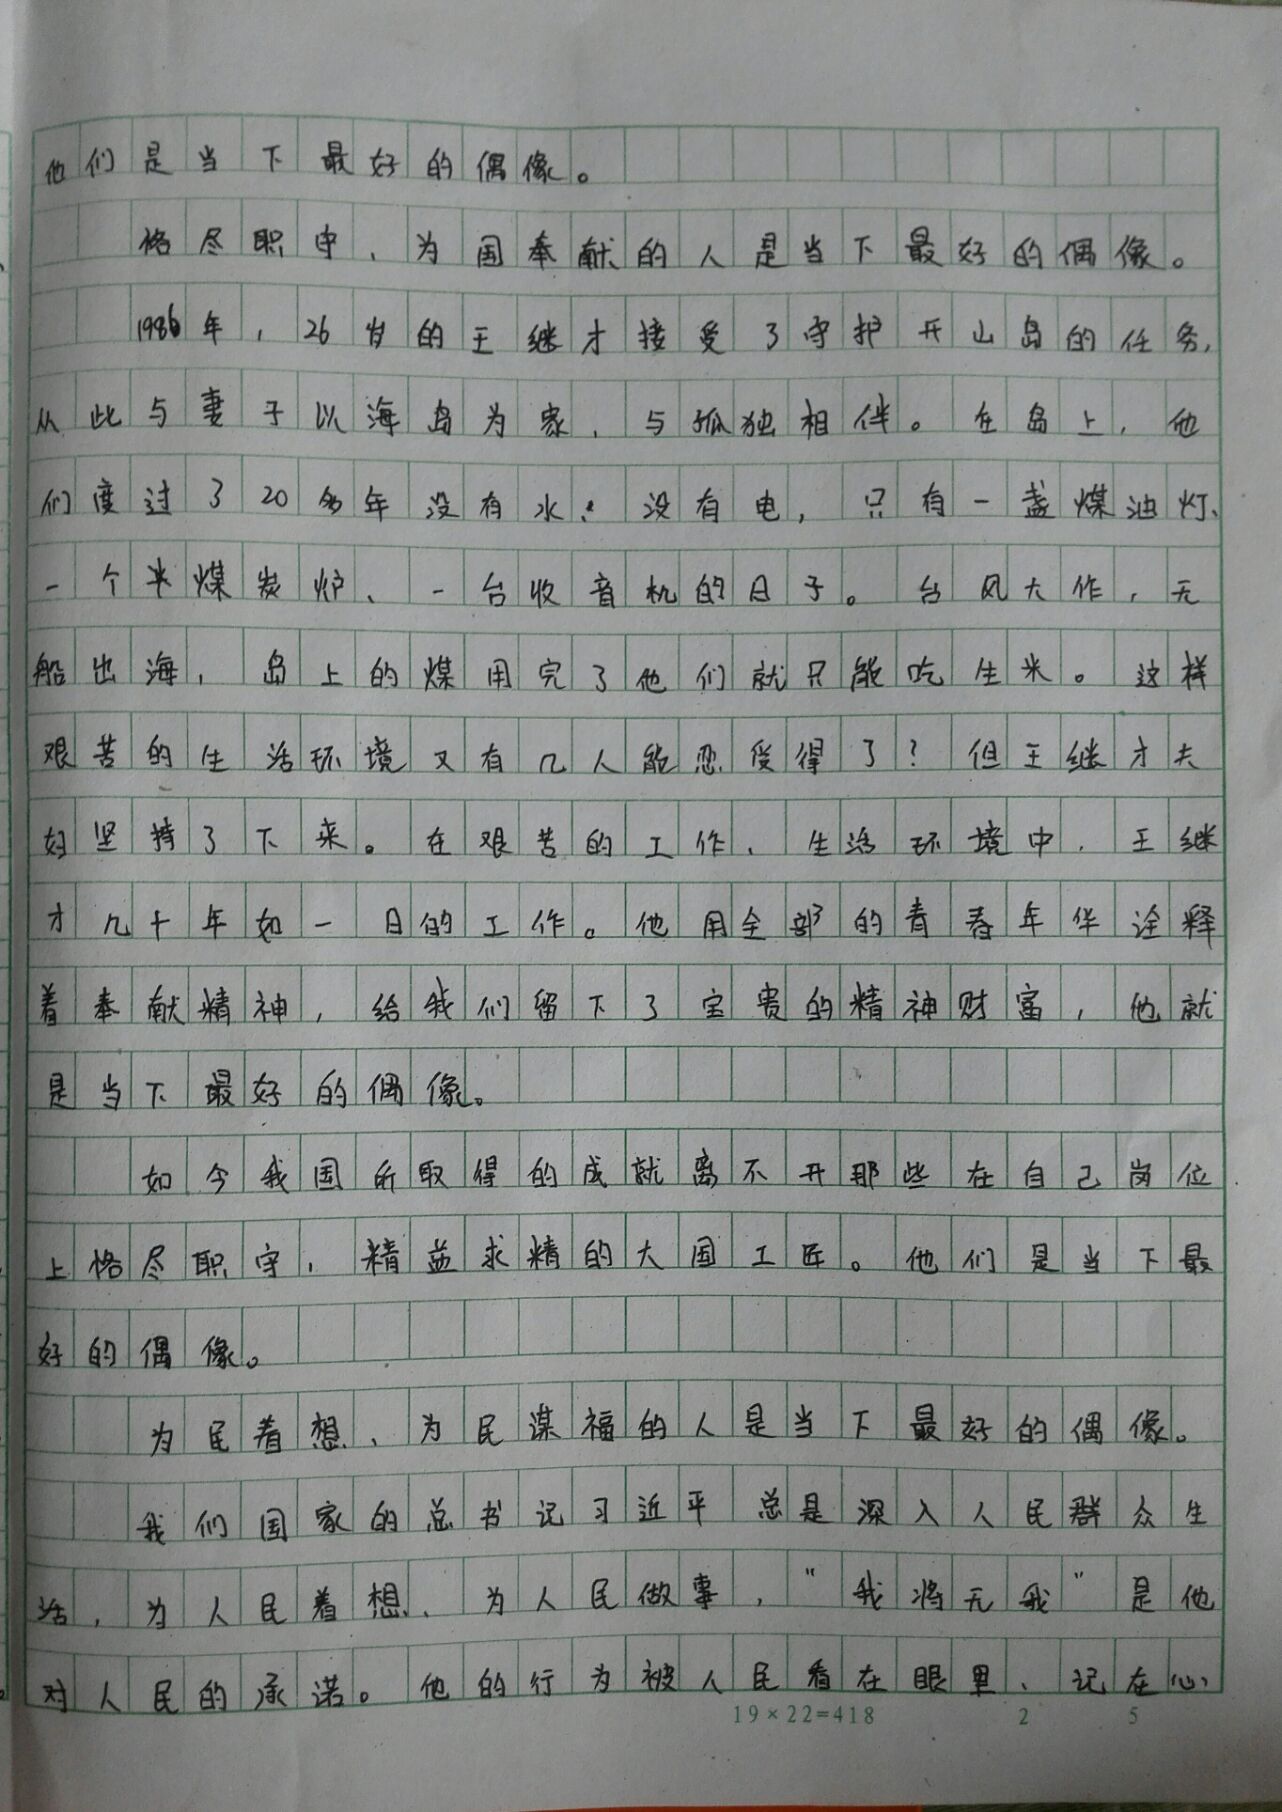 他们是当下最好的偶像。
格尽职守，为国奉献的人是当下最好的偶像。
1986年，26岁的王继才接受了守护开山岛的任务，
从此与妻子以海岛为家，与孤独相伴。在岛上，他
们度过了20多年没有水、没有电，只有一盏煤油灯、
一个半煤炭炉、一台收音机的日子。台风大作，无
船出海，岛上的煤用完了他们就只能吃生米。这样
艰苦的生活环境又有几人能忍受得了？但王继才夫
妇坚持了下来。在艰苦的工作、生活环境中，王继
才几十年如一日的工作。他用全部的青春年华诠释
着奉献精神，给我们留下了宝贵的精神财富，他就
是当下最好的偶像。
如今我国所取得的成就离不开那些在自己岗位
上格尽职守，精益求精的大国工匠。他们是当下最
好的偶像。
为民着想、为民谋福的人是当下最好的偶像。
我们国家的总书记习近平总是深入人民群众生
活，为人民着想、为人民做事，“我将无我”是他
对人民的承诺。他的行为被人民看在眼里、记在心
19×22=418 2 5